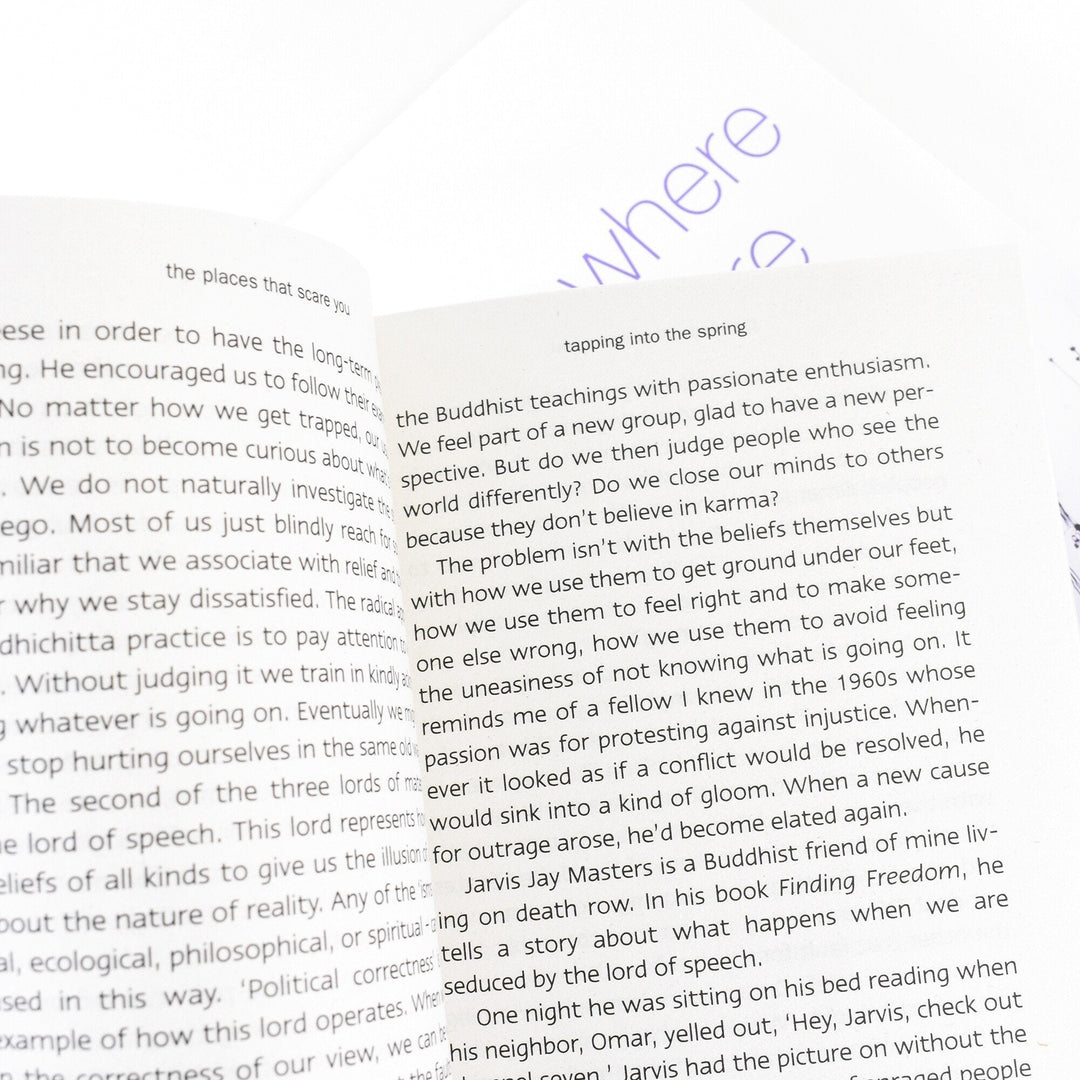 where
the places that scare you
in order to have the long-term
He encouraged us to follow their
No matter how we get trapped, our
is not to become curious about what
We do not naturally investigate the
ego. Most of us just blindly reach for
that we associate with relief and
why we stay dissatisfied. The radical
practice is to pay attention to
Without judging it we train in kindly
whatever is going on. Eventually we
stop hurting ourselves in the same old
The second of the three lords of
lord of speech. This lord represents
of all kinds to give us the illusion
the nature of reality. Any of the
ecological, philosophical, or spiritual -
in this way. ‘Political correctness’
of how this lord operates. When
the correctness of our view, we can be
the
tapping into the spring
the Buddhist teachings with passionate enthusiasm.
We feel part of a new group, glad to have a new per-
spective. But do we then judge people who see the
world differently? Do we close our minds to others
because they don’t believe in karma?
The problem isn’t with the beliefs themselves but
with how we use them to get ground under our feet,
how we use them to feel right and to make some-
one else wrong, how we use them to avoid feeling
the uneasiness of not knowing what is going on. It
reminds me of a fellow I knew in the 1960s whose
passion was for protesting against injustice. When-
ever it looked as if a conflict would be resolved, he
would sink into a kind of gloom. When a new cause
for outrage arose, he’d become elated again.
Jarvis Jay Masters is a Buddhist friend of mine liv-
ing on death row. In his book Finding Freedom, he
tells a story about what happens when we are
seduced by the lord of speech.
One night he was sitting on his bed reading when
his neighbor, Omar, yelled out, ‘Hey, Jarvis, check out
seven.’ Jarvis had the picture on without the
people